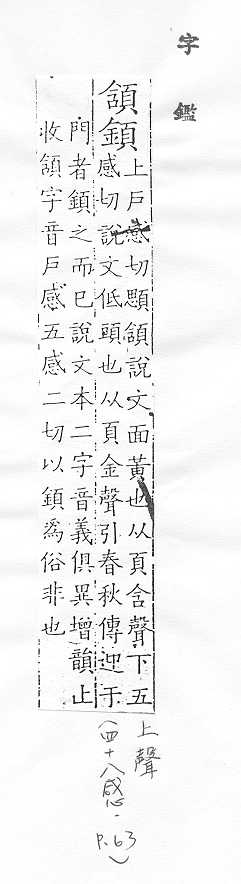 字鑑
頷顉
上戶感切顋頷說文面黃也从頁含聲下五
感切說文低頭也从頁金聲引春秋傳迎于
門者顉之而已說文本二字音義俱異增韻止
收頷字音戶感五感二切以顉爲俗非也
上聲
(四十八感.
P.63)